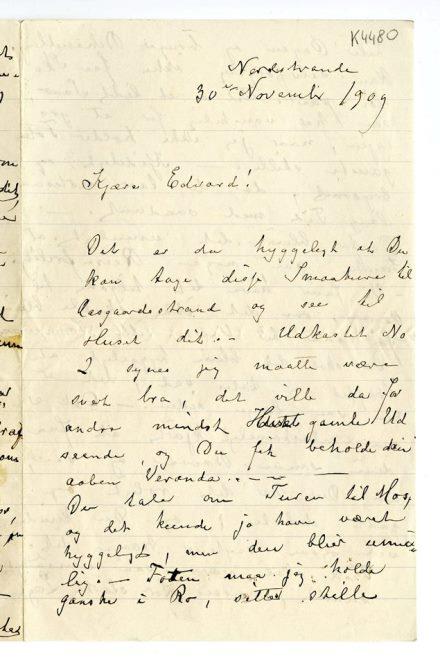 K4480
Nordstrande
30te November 1909
Kjære Edvard!
Det er da hyggeligt at Du
kan tage disse Smaature til
Aasgaardsstrand og see til
Huset dit. – Udkastet No
2 synes jeg maatte være
svært bra, det ville da for
andre mindst Husets gamle Ud
seende, og Du fik beholde din
aaben Veranda. –
Du taler om Turen til Moss
og det kunde jo have været
hyggeligt, men den blir umu
lig. – Foten maa jeg holde
ganske i Ro, sitte stille